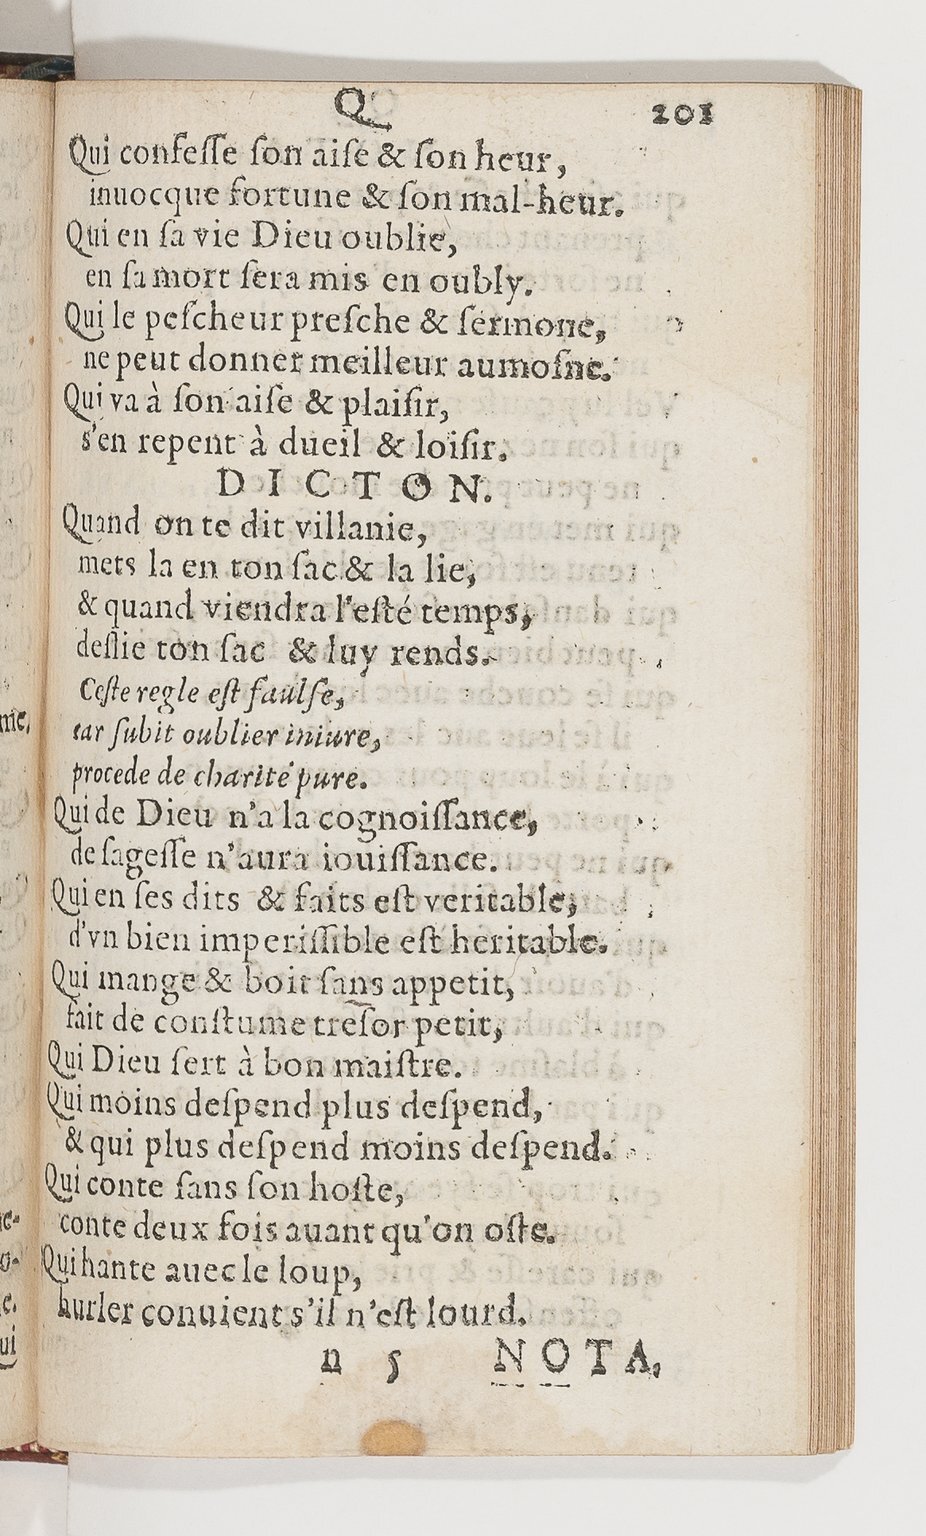 Q 201
Qui confeſſe ſon aiſe & ſon heur,
inuocque fortune & ſon mal-heur.
Qui en ſa vie Dieu oublie,
en ſa mort ſera mis en oubly.
Qui le peſcheur preſche & ſermone,
ne peut donner meilleur aumoſne.
Qui va à ſon aiſe & plaiſir,
s'en repent à dueil & loiſir.
DICTON.
Quand on te dit villanie,
mets la en ton ſac & la lie,
& quand viendra l'eſté temps,
deſlie ton ſac & luy rends.
Ceſte regle eſt faulſe,
car ſubit oublier iniure,
procede de charité pure.
Qui de Dieu n'a la cognoiſſance,
de ſageſſe n'aura iouiſſance.
Qui en ſes dits & faits eſt veritable,
d'vn bien imperiſſible eſt heritable.
Qui mange & boit ſans appetit,
fait de conſtume treſor petit,
Qui Dieu ſert à bon maiſtre.
Qui moins deſpend plus deſpend,
& qui plus deſpend moins deſpend.
Qui conte ſans ſon hoſte,
conte deux fois auant qu'on oſte.
Qui hante auec le loup,
hurler conuient s'il n'eſt lourd.
n 5 NOTA,